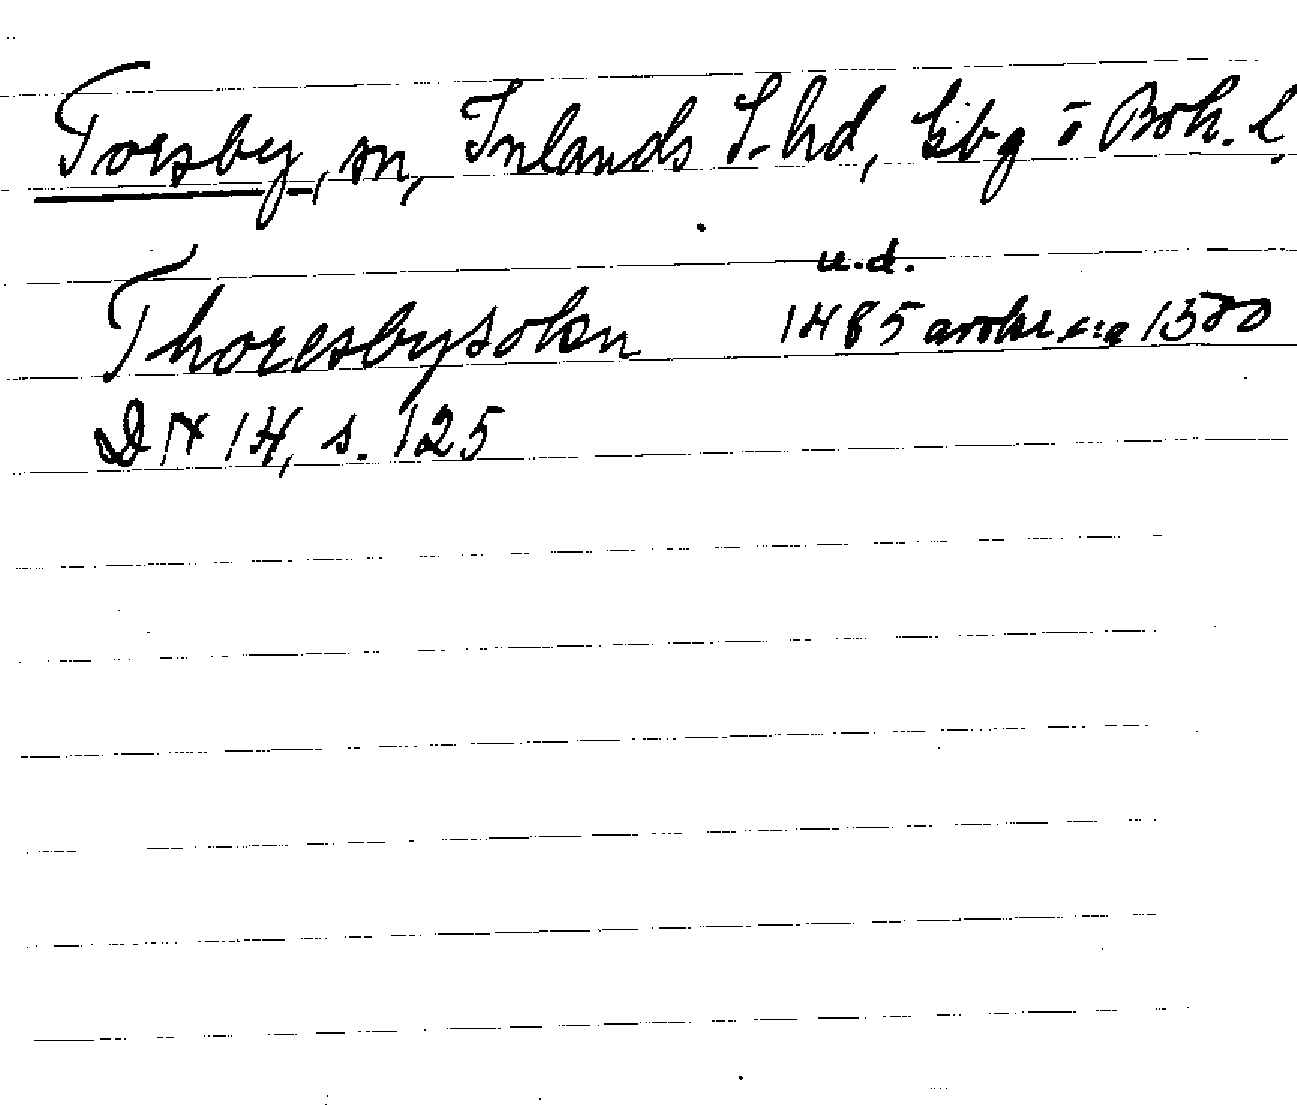 Torsby, sn, Inlands S. hd, Gbg o Boh. l.
u.d.
Thoresbysokn 1485 avskr ca 1500
DN 14, s. 125